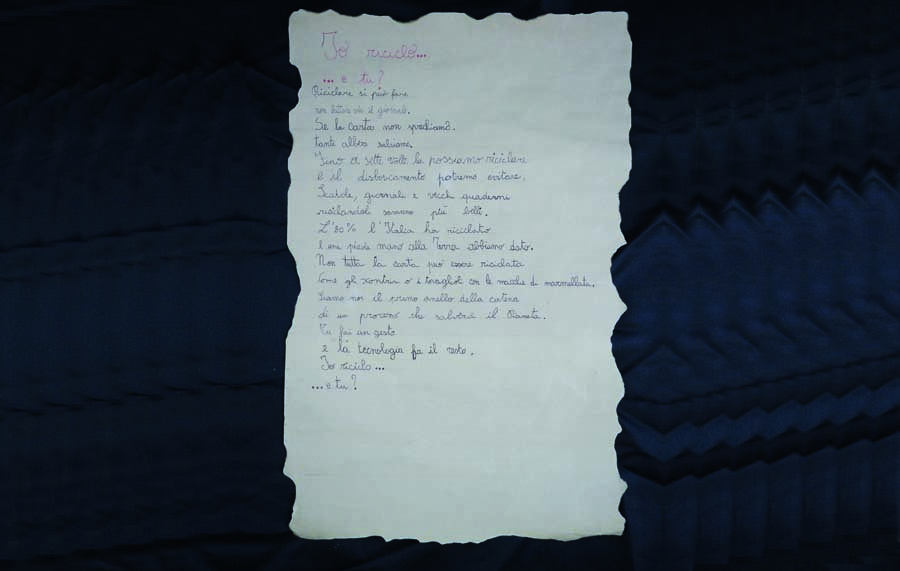 Io riciclo...
... e tu?
Riciclare si può fare
non buttare via il giornale.
Se la carta non sprechiamo.
tante alberi salviamo.
Fino a sette volte la possiamo riciclare
e il disboscamento potremo evitare.
Scatole, giornali e vecchi quaderni
riciclandoli saranno più belli.
L'80% l'Italia ha riciclato
e una piccola mano alla Terra abbiamo dato.
Non tutta la carta può essere riciclata
come gli scontrini o i tovaglioli con le macchie di marmellata.
Siamo noi il primo anello della catena
di un processo che salverà il Pianeta.
Tu fai un gesto
e la tecnologia fa il resto.
Io riciclo...
... e tu?